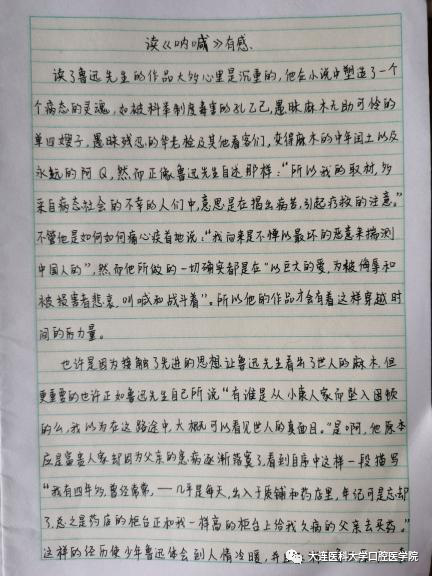 读《呐喊》有感.
读了鲁迅先生的作品大多心里是沉重的,他在小说中塑造了一个
个病态的灵魂,如被科举制度毒害的孔乙己,愚昧麻木无助可怜的
单四嫂子,愚昧残忍的华老栓及其他看客们,变得麻木的中年闰土以及
永远的阿Q,然而正像鲁迅先生自述那样:“所以我的取材,多
采自病态社会的不幸的人们中,意思是在揭出病苦,引起疗救的注意。”
不管他是如何如何痛心疾首地说:“我向来是不惮以最坏的恶意来揣测
中国人的”,然而他所做的一切确实都是在“以巨大的爱,为被侮辱和
被损害者悲哀,叫喊和战斗着”。所以他的作品才会有着这样穿越时
间的力量。
也许是因为接触了先进的思想让鲁迅先生看出了世人的麻木,但
更重要的也许正如鲁迅先生自己所说“有谁是从小康人家而坠入困顿
的么,我以为在这路途中,大概可以看见世人的真面目。”是啊,他原本
应是富贵人家却因为父亲的急病逐渐落寞了,看到自序中这样一段描写
“我有四年多,曾经常常,——几乎是每天,出入于质铺和药店里,年纪可是忘却
了,总之是药店的柜台正和我一样高的柜台上给我久病的父亲去买药。”
这样的经历使少年鲁迅体会到人情冷暖,并
大连医科大学口腔医学院